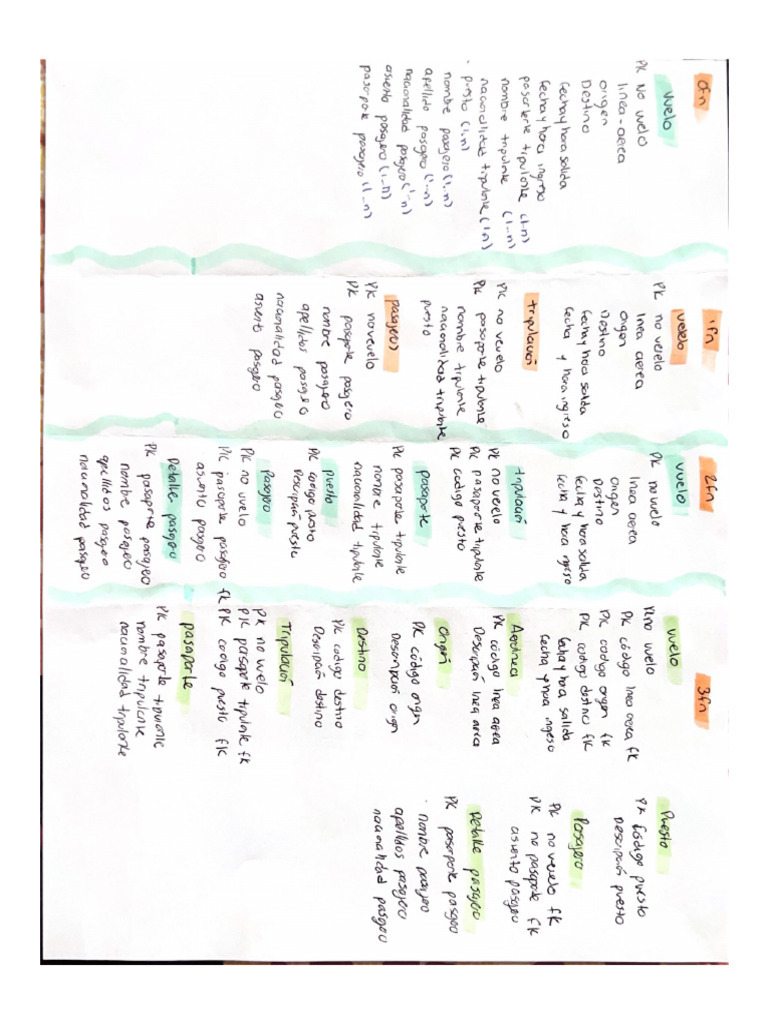 0fn
vuelo
PK No vuelo
linea-aerea
origen
Destino
fecha y hora salida
fecha y hora ingreso
pasaporte tripulante (1-n)
nombre tripulante (1-n)
nacionalidad tripulante (1-n)
puesto (1-n)
nombre pasajero (1-n)
apellido pasajero (1-n)
nacionalidad pasajero (1-n)
asiento pasajero (1-n)
pasaporte pasajero (1-n)
1fn
vuelo
PK no vuelo
linea aerea
origen
Destino
fecha y hora salida
fecha y hora ingreso
tripulación
PK no vuelo
PK pasaporte tripulante
nombre tripulante
nacionalidad tripulante
puesto
pasajeros
PK no vuelo
PK pasaporte pasajero
nombre pasajero
apellidos pasajero
nacionalidad pasajero
asiento pasajero
2fn
vuelo
PK no vuelo
linea aerea
origen
Destino
fecha y hora salida
fecha y hora ingreso
tripulación
PK no vuelo
PK pasaporte tripulante
PK codigo puesto
pasaporte
PK pasaporte tripulante
nombre tripulante
nacionalidad tripulante
puesto
PK codigo puesto
Descripción puesto
Pasajero
PK no vuelo
PK pasaporte pasajero fk
asiento pasajero
Detalle pasajero
PK pasaporte pasajero
nombre pasajero
apellidos pasajero
nacionalidad pasajero
3fn
vuelo
PK no vuelo
PK código linea aerea fk
PK codigo origen fk
PK codigo destino fk
fecha y hora salida
fecha y hora ingreso
Aerolinea
PK código linea aerea
Descripción linea aerea
Origen
PK código origen
Descripción origen
Destino
PK codigo destino
Descripción destino
Tripulación
PK no vuelo
PK pasaporte tripulante fk
PK codigo puesto fk
pasaporte
PK pasaporte tripulante
nombre tripulante
nacionalidad tripulante
Puesto
PK código puesto
Descripción puesto
Pasajero
PK no vuelo fk
PK no pasaporte fk
asiento pasajero
Detalle pasajero
PK pasaporte pasajero
nombre pasajero
apellidos pasajero
nacionalidad pasajero